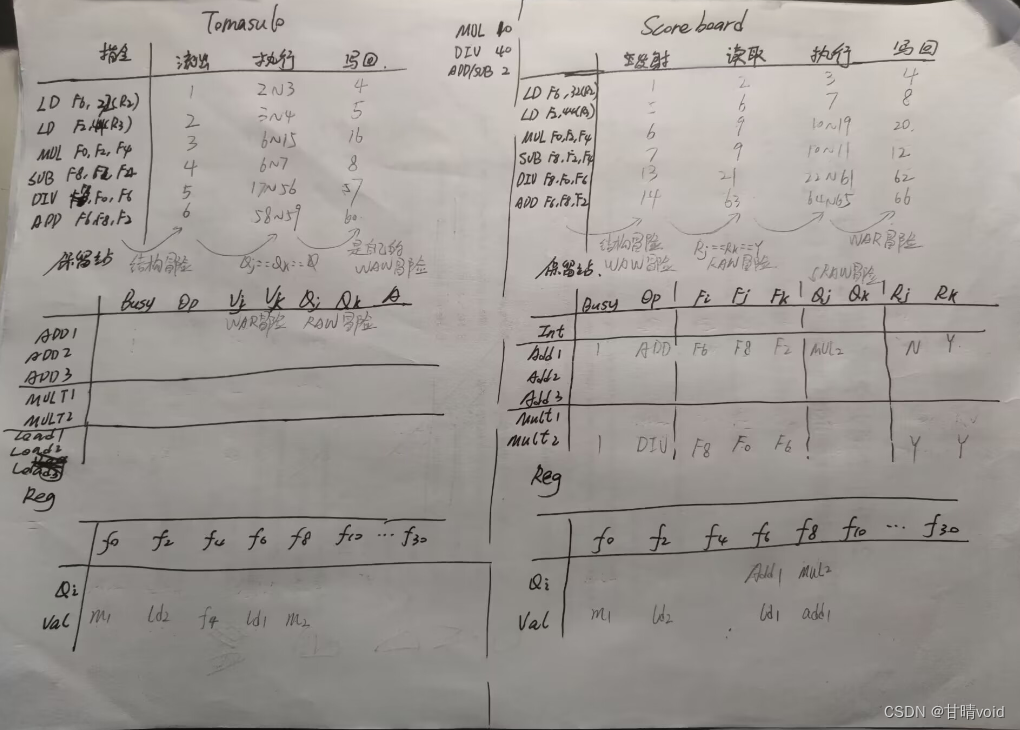 Tomasulo
指令 流出 执行 写回
LD F6, 27(R2) 1 2~3 4
LD F2,44(R3) 2 3~4 5
MUL F0,F2,F4 3 6~15 16
SUB F8,F2,F4 4 6~7 8
DIV F0,F6 5 17~56 57
ADD F6,F8,F2 6 58~59 60
结构冒险 Qj==Qk==0 是自己的
WAW冒险
保留站
Busy Op Vj Vk Qj Qk A
WAR冒险 RAW冒险
ADD1
ADD2
ADD3
MULT1
MULT2
Load1
Load2
Reg
f0 f2 f4 f6 f8 f10 ... f30
Qi
Val m1 ld2 f4 ld1 m2
MUL 10
DIV 40
ADD/SUB 2
Scoreboard
发射 读取 执行 写回
LD F6,32(R2) 1 2 3 4
LD F2,44(R3) 5 6 7 8
MUL F0,F2,F4 6 9 10~19 20
SUB F8,F2,F4 7 9 10~11 12
DIV F8,F0,F6 13 21 22~61 62
ADD F6,F8,F2 14 63 64~65 66
结构冒险 Rj==Rk==Y WAR冒险
WAW冒险 RAW冒险
保留站. RAW冒险
Busy Op Fi Fj Fk Qj Qk Rj Rk
Int
Add1 1 ADD F6 F8 F2 MUL2 N Y
Add2
Add3
Mult1
Mult2 1 DIV F8 F0 F6 Y Y
Reg
f0 f2 f4 f6 f8 f10 ... f30
Qi Add1 mul2
Val m1 ld2 ld1 add1
CSDN @甘晴void